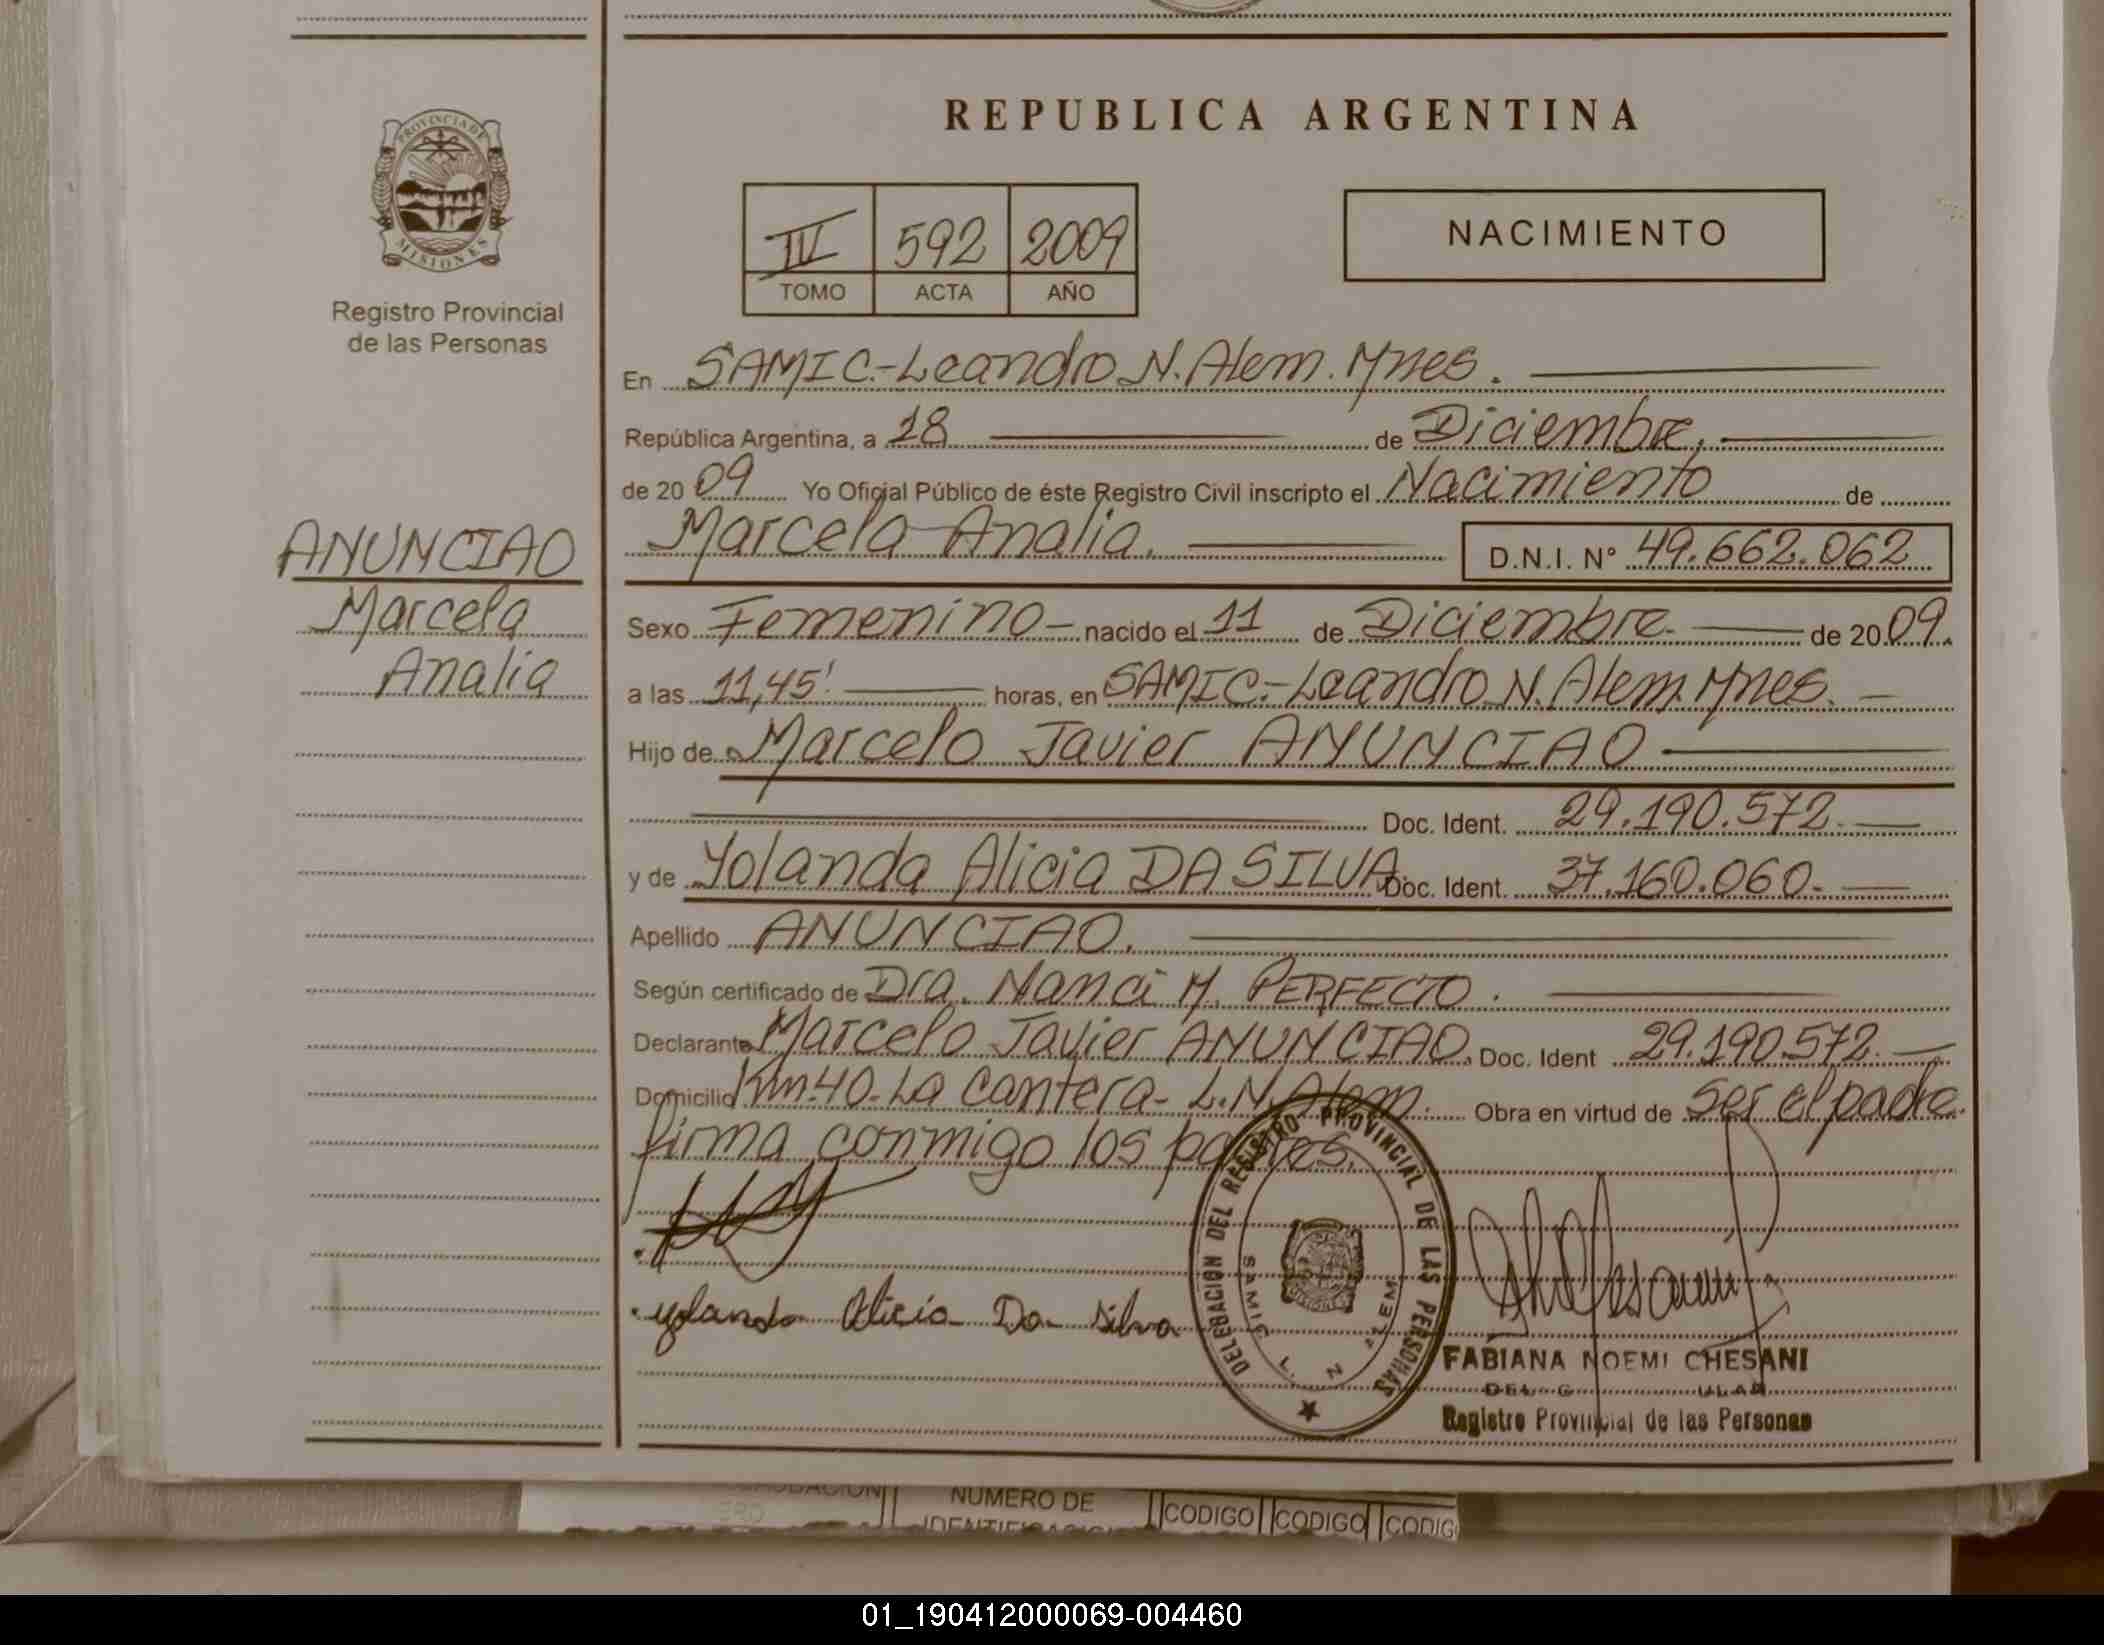 REPUBLICA ARGENTINA
PROVINCIA DE
MISIONES
Registro Provincial
de las Personas
IV 592 2009
TOMO ACTA AÑO
NACIMIENTO
En SAMIC.-Leandro N. Alem. Mnes.
República Argentina, a 18 de Diciembre.
de 2009 Yo Oficial Público de éste Registro Civil inscripto el Nacimiento de
Marcela Analia. D.N.I. N° 49.662.062
ANUNCIAO
Marcela
Analia
Sexo Femenino - nacido el 11 de Diciembre. de 2009.
a las 11,45' horas, en SAMIC.-Leandro N. Alem. Mnes.
Hijo de Marcelo Javier ANUNCIAO
Doc. Ident. 29.190.572.
y de Yolanda Alicia DA SILVA. Doc. Ident. 37.160.060.
Apellido ANUNCIAO.
Según certificado de Dra. Nanci M. PERFECTO.
Declarante Marcelo Javier ANUNCIAO. Doc. Ident 29.190.572.
Domicilio Km.40. La Cantera- L.N. Alem. Obra en virtud de ser el padre.
firma conmigo los padres.
Yolanda Alicia Da Silva
DELEGACION DEL REGISTRO PROVINCIAL DE LAS PERSONAS
SAMIC L. N ALEM
FABIANA NOEMI CHESANI
Registro Provincial de las Personas
NUMERO DE
CODIGO CODIGO CODIG
01_190412000069-004460